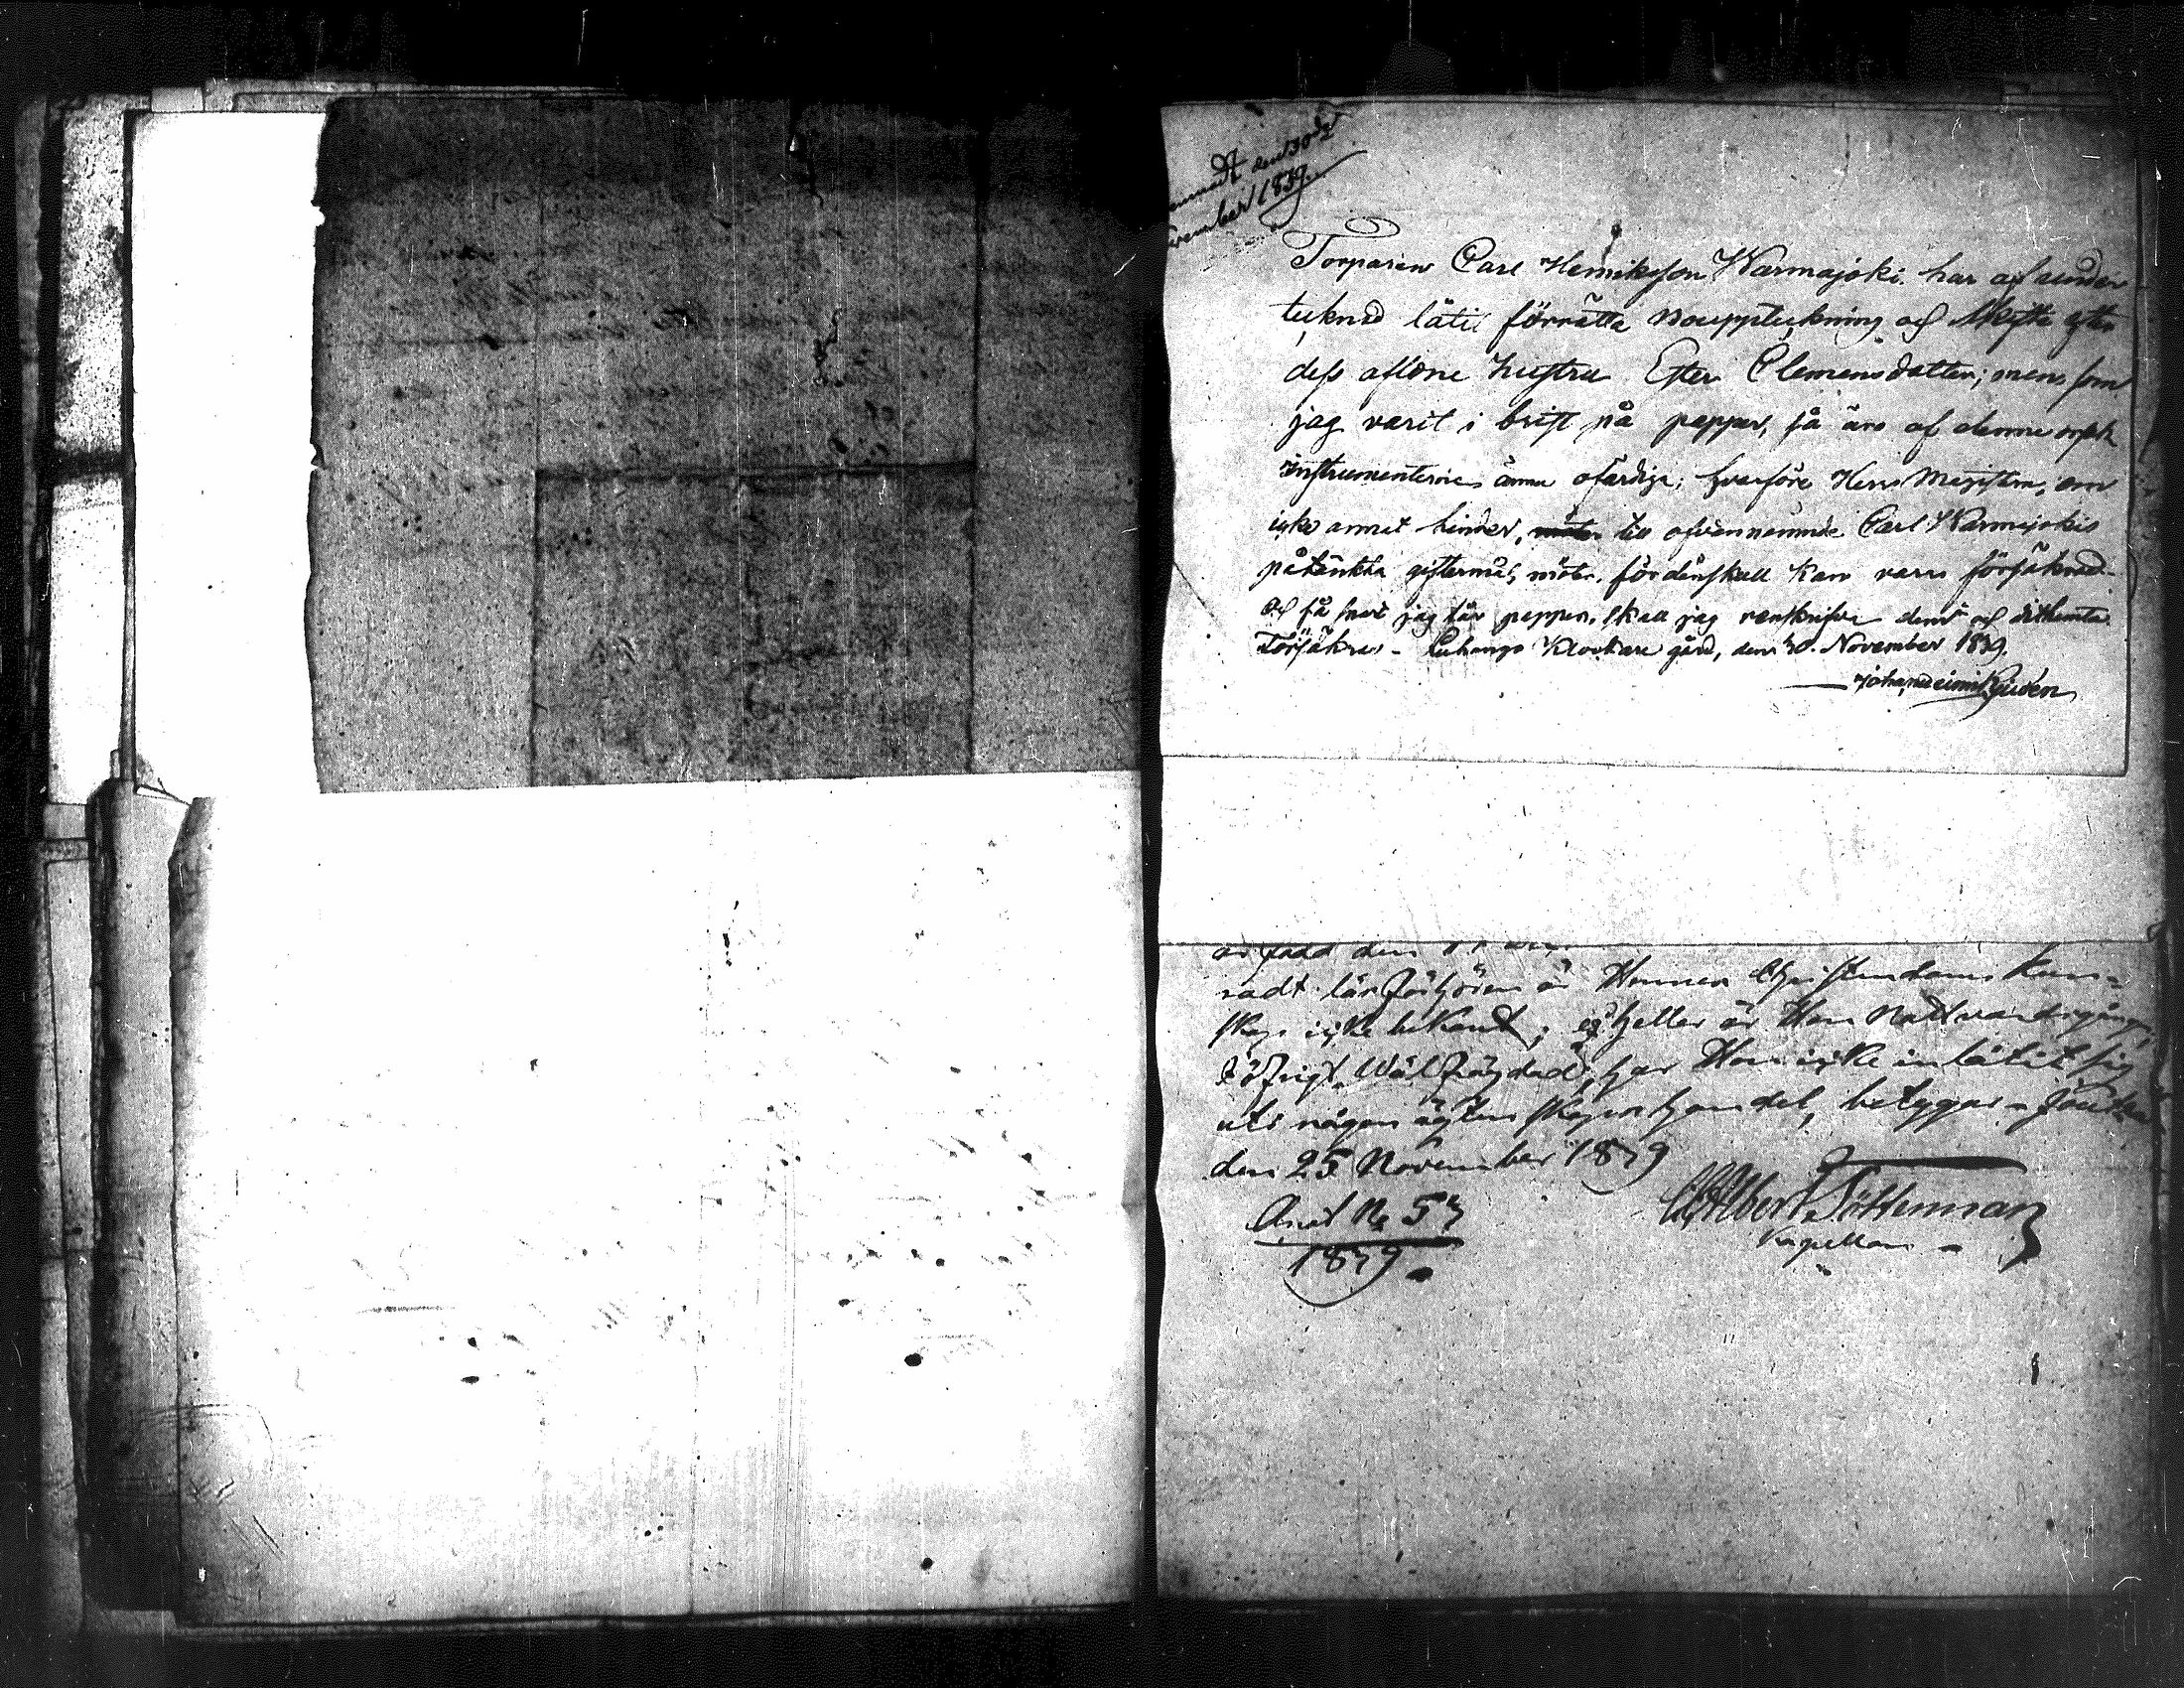 den 30de
vember 1839.
Torparen Carl Henriksson Warmajoki har af under
teknad låtit förrätta Bouppteckning och Skifte efter
dess aflidne hustru Ester Clemensdotter; men som
jag varit i brist på papper, så äro af denne orsak
Instrumenterne ännu ofärdige; hvarföre Herr Magistern, om
icke annat hinder, till ofvannemnde Carl Warmajokis
påtänkta giftermål, möter, fördenskull kan vara försäkrad.
Och så snart jag får papper, skall jag renskrifva dem och dithemta
Försäkras - Luhango Klockare gård, den 30. November 1839.
Johan
är född den
radt läsförhören är Hennes Christendoms kun-
skap icke bekant; ej heller är Hon Nattvardsgången,
I öfrigt Wälfräjdad, har Hon icke inlåtit sig
uti någon ägtenskapshandel, betygar - Joutsa
den 25 November 1839
Albert
Kapellan -
Anat No 57
1839.